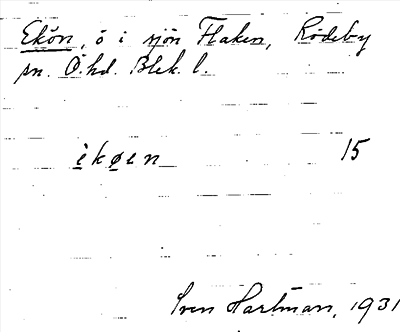 Ekön, ö i sjön Flaken, Rödeby
sn. Ö. hd. Blek. l.
ikøen 15
Sven Hartman, 1931